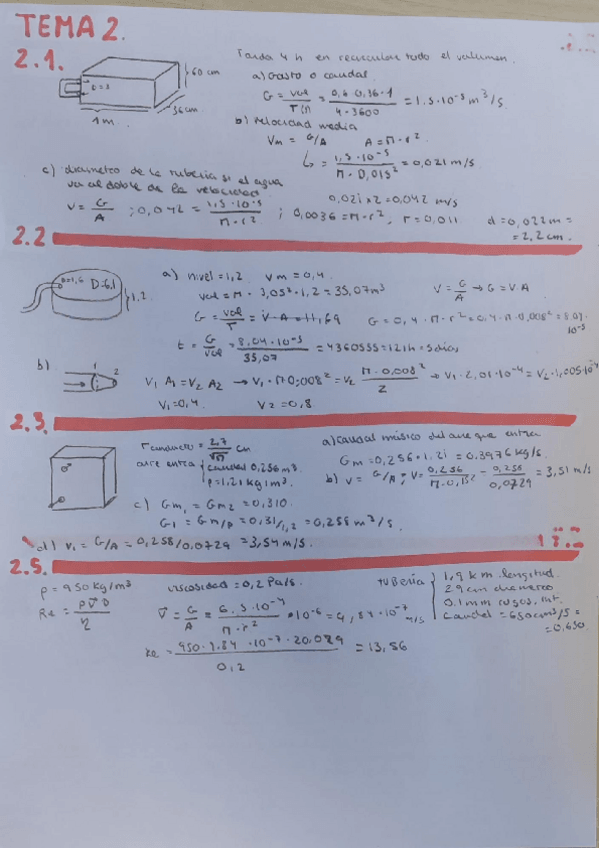 TEMA 2.
2.1.
Tarda 4 h en recircular todo el volumen.
60 cm
36 cm
1m
a) Gasto o caudal
G = vol/T(s) = 0,6·0,36·1/4·3600 = 1.5·10⁻⁵ m³/s.
b) velocidad media
Vm = G/A A = π·r²
= 1,5·10⁻⁵/π·0,015² = 0,021 m/s
c) diametro de la tuberia si el agua
va al doble de la velocidad
0,021x2=0,042 m/s
V = G/A ; 0,042 = 1,5·10⁻⁵/π·r² ; 0,0036 = π·r², r = 0,011. d = 0,022 m =
= 2,2 cm.
2.2
D=6,1
1,2
a) nivel = 1,2 Vm = 0,4.
vol = π · 3,05² · 1,2 = 35,07m³ V = G/A → G = V A
G = vol/T = V·A = 11,69 G = 0,4·π·r² = 0,4·π·0,008² = 8,04·10⁻⁵
t = G/vol = 8,04·10⁻⁵/35,07 = 4360555 = 121h = 5 dias
b)
1 2
V₁ A₁ = V₂ A₂ → V₁·π·0,008² = V₂ π·0,008²/2 → V₁·2,01·10⁻⁴ = V₂·1,005·10⁻⁴
V₁ = 0,4 V₂ = 0,8.
2.3.
r conducto = 2,7/√π cm
aire entra { caudal 0,256 m³.
ρ = 1,21 kg/m³.
a) Caudal másico del aire que entra
Gm = 0,256 · 1,21 = 0.3976 kg/s.
b) V = G/A ; V = 0,256/π·0,152 = 0,256/0,0729 = 3,51 m/s
c) Gm₁ = Gm₂ = 0,310.
G₁ = Gm/ρ = 0,31/1,2 = 0,258 m³/s.
d) V₁ = G/A = 0,258/0,0729 = 3,54 m/s.
2.5.
ρ = 950 kg/m³ viscosidad = 0,2 Pa/s.
tuberia { 1,9 km longitud.
29 cm diametro
0.1 mm rugos. int.
caudal = 650 cm³/s =
= 0,650
Re = ρ V D/η
V = G/A = 6,5·10⁻⁴/π·r² · 10⁻⁶ = 9,84·10⁻⁷ m/s
Re = 950·9.84·10⁻⁷·20,029/0,2 = 13,56